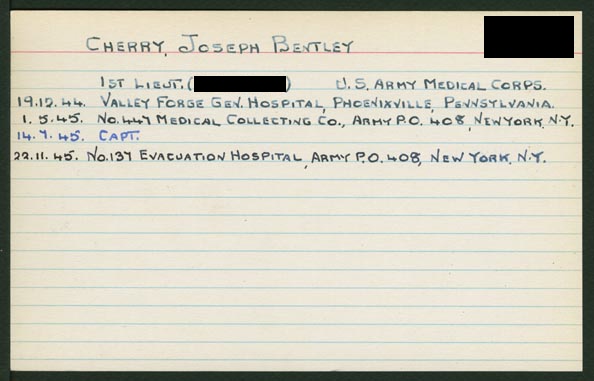 CHERRY, JOSEPH BENTLEY
1ST LIEUT. ( ) U.S. ARMY MEDICAL CORPS.
19.12.44. VALLEY FORGE GEN. HOSPITAL, PHOENIXVILLE, PENNSYLVANIA.
1.5.45. NO.447 MEDICAL COLLECTING CO., ARMY P.O. 408, NEW YORK, N.Y.
14.7.45. CAPT.
22.11.45. NO.137 EVACUATION HOSPITAL, ARMY P.O. 408, NEW YORK, N.Y.